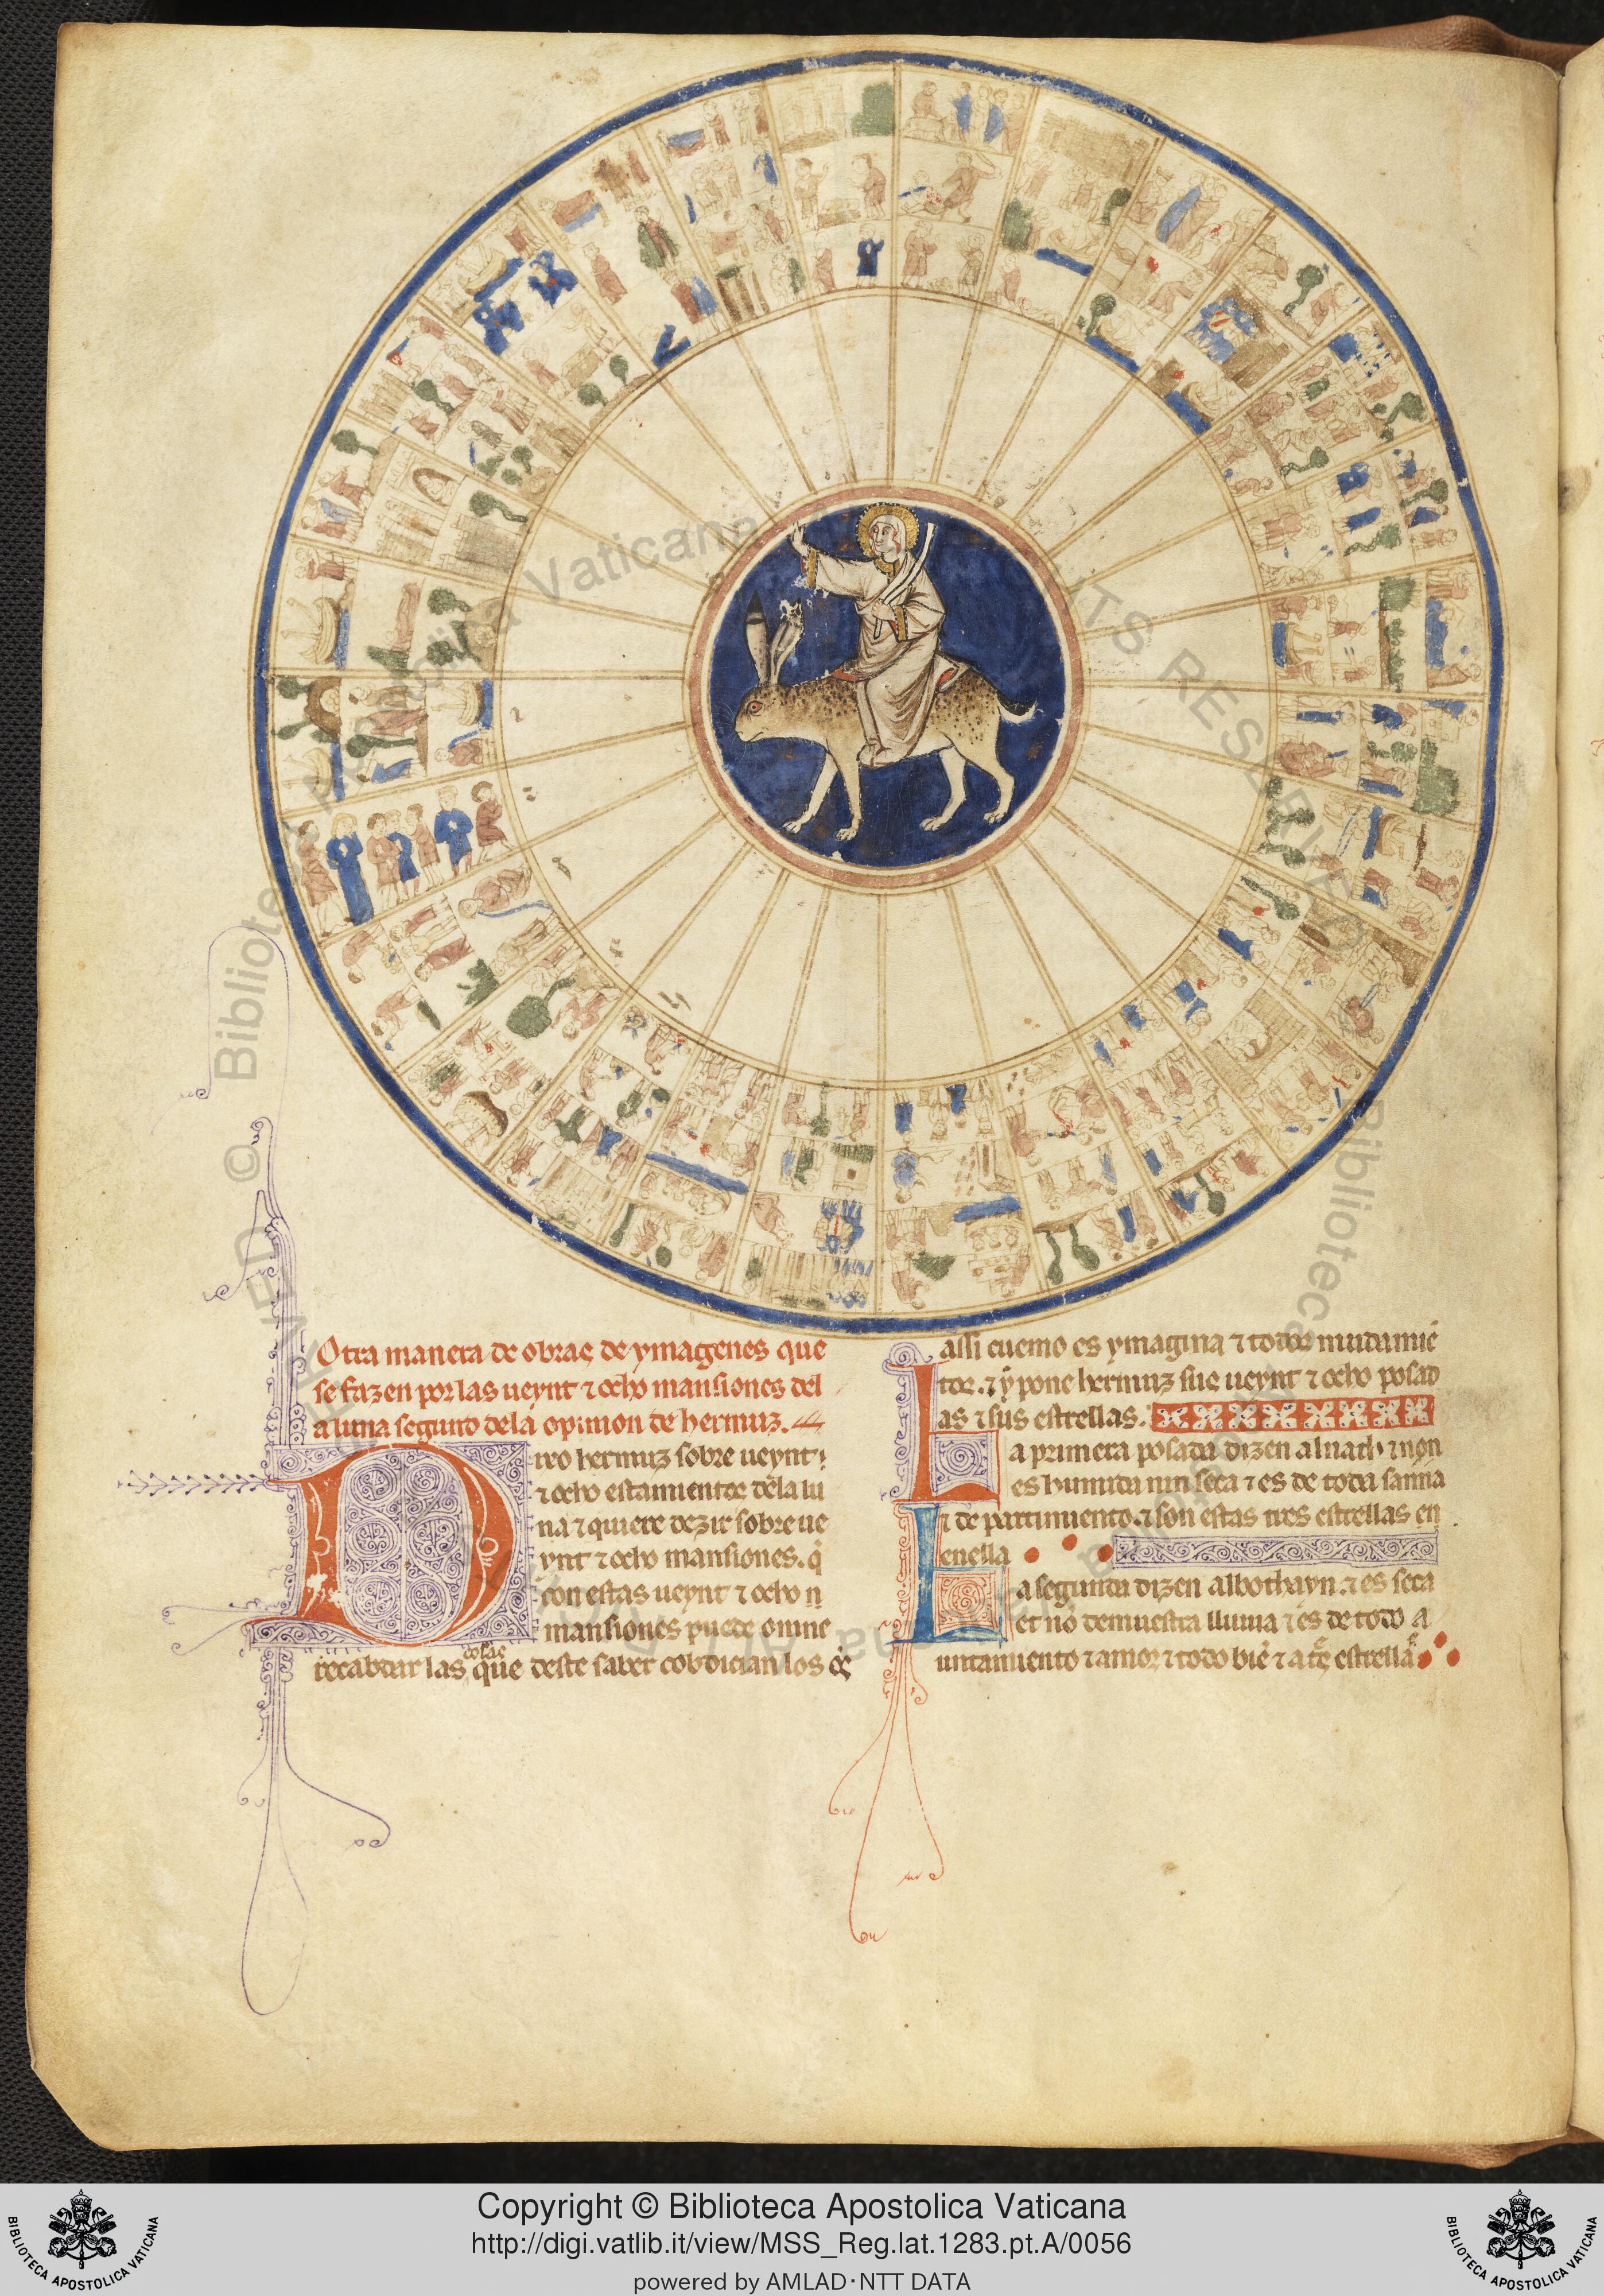 Otra manera de obras de ymagenes que
se fazen por las ueynt ⁊ ocho mansiones del
a luna segund dela opinion de hermuz.
Dixo hermuz sobre ueynt
⁊ ocho estamientos dela lu
na ⁊ quiere dezir sobre ue
ynt ⁊ ocho mansiones. q̇
con estas ueynt ⁊ ocho
mansiones puede omne
cosas
recabdar las que deste saber cobdician los
assi cuemo es ymagina ⁊ todos mudamiē
tos. ⁊ ẏ pone hermuz sus ueynt ⁊ ocho posad
as ⁊ sus estrellas.
La primera posada dizen alnath ⁊ non
es humida nin seca ⁊ es de toda sanna
⁊ de partimiento. ⁊ son estas tres estrellas en
enella
La segunda dizen albothayn. ⁊ es seca
et nō demuestra lluuia ⁊ es de todo a
untamiento ⁊ amor ⁊ todo biē ⁊ estrella
© Biblioteca Apostolica Vaticana
RIGHTS RESERVED
Copyright © Biblioteca Apostolica Vaticana
http://digi.vatlib.it/view/MSS_Reg.lat.1283.pt.A/0056
powered by AMLAD·NTT DATA
BIBLIOTECA APOSTOLICA VATICANA
BIBLIOTECA APOSTOLICA VATICANA